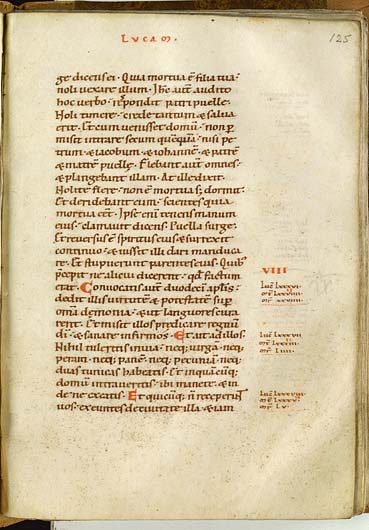 LUCAM.
125
ge dicens ei · Quia mortua ÷ filia tua ·
noli vexare illum · Ihc aut audito
hoc verbo · respondit patri puelle ·
Noli timere · crede tantum & salva
erit · Et cum venisset domū · non p
misit intrare secum quēquā · nisi pe
trum · & iacobum · & iohannē · & patrē
& matrē puelle · Flebant aut omnes ·
& plangebant illam · At ille dixit ·
Nolite flere · non ÷ mortua s; dormit ·
Et deridebant eum · scientes quia
mortua eet · Ipse enī tenens manum
eius · clamavit dicens · Puella surge ·
Et reversus ÷ spiritus eius · & surrexit
continuo · & iussit illi dari manduca
re · Et stupuerunt parentes eius · Quib'
p̄cepit ne alicui dicerent · qd factum
erat · Convocatis aut duodecī aplis ·
dedit illis virtutē & potestatē sup
omīa demonia · & ut languores cura
rent · Et misit illos predicare regnū
dī · & sanare infirmos · Et ait ad illos ·
Nihil tuleritis in via · neq; virgā · neq;
peram · neq; panē · neq; pecuniā · neq;
duas tunicas habeatis · Et in quācūq;
domū intraveritis · ibi manete · & in
de ne exeatis · Et quicūq; n̄ receperint
vos · exeuntes de civitate illa · & iam
VIII
Luc LXXXVI